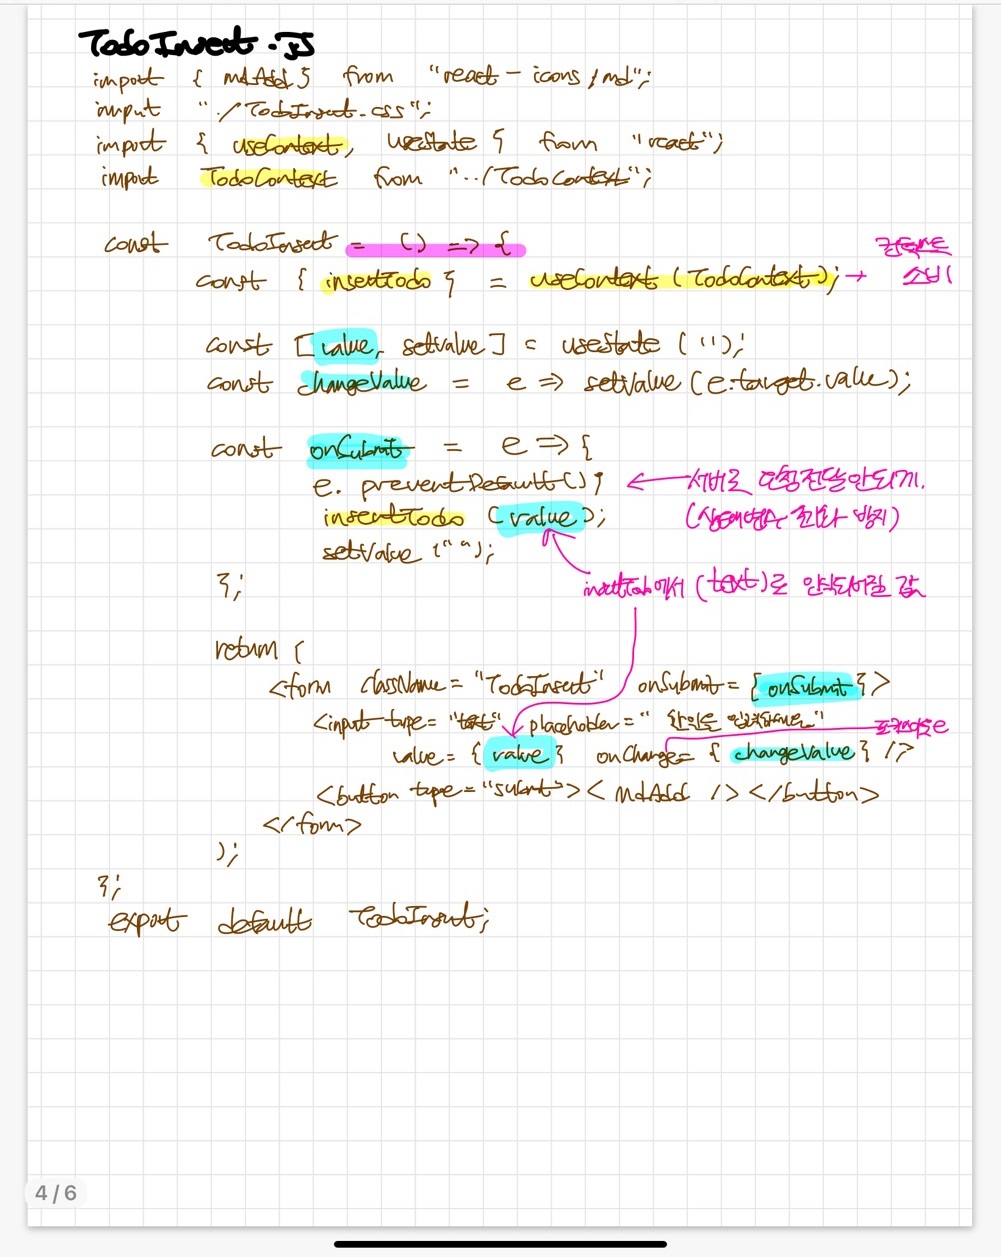 TodoInsert.JS
import { mdAdd } from "react-icons/md";
import "./TodoInsert.css";
import { useContext, useState } from "react";
import TodoContext from "../TodoContext";
const TodoInsert = () => {
컴포넌트
const { insertTodo } = useContext (TodoContext); → 소비
const [value, setValue] = useState ('');
const changeValue = e => setValue (e.target.value);
const onSubmit = e => {
e. preventDefault(); ← 서버로 요청전달안되게.
insertTodo (value); (상태변수 초기화 방지)
setValue ("");
};
insertTodo에서 (text)로 인식되어질 값
return (
<form className = "TodoInsert" onSubmit = {onSubmit}>
<input type = "text" placeholder = " 할일을 입력하세요"
value = {value} onChange = {changeValue} />
<button type = "submit"><MdAdd /></button>
</form>
);
};
export default TodoInsert;
4/6